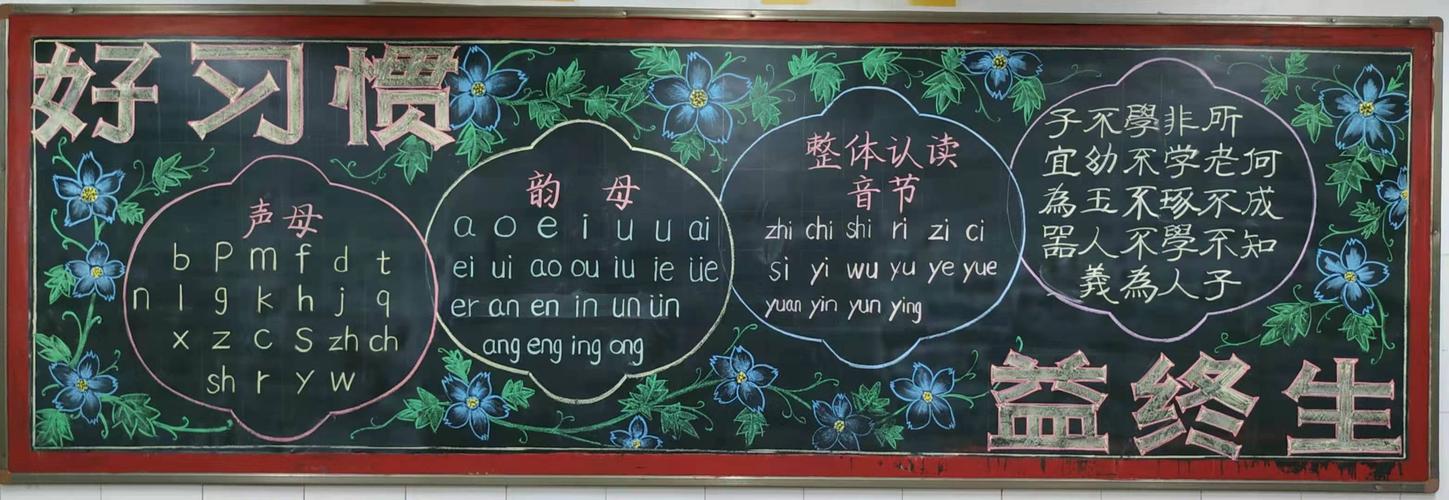 好习惯
声母
b p m f d t
n l g k h j q
x z c s zh ch
sh r y w
韵 母
a o e i u u ai
ei ui ao ou iu ie üe
er an en in un ün
ang eng ing ong
整体认读
音节
zhi chi shi ri zi ci
si yi wu yu ye yue
yuan yin yun ying
子不學非所
宜幼不学老何
為玉不琢不成
器人不學不知
義為人子
益终生